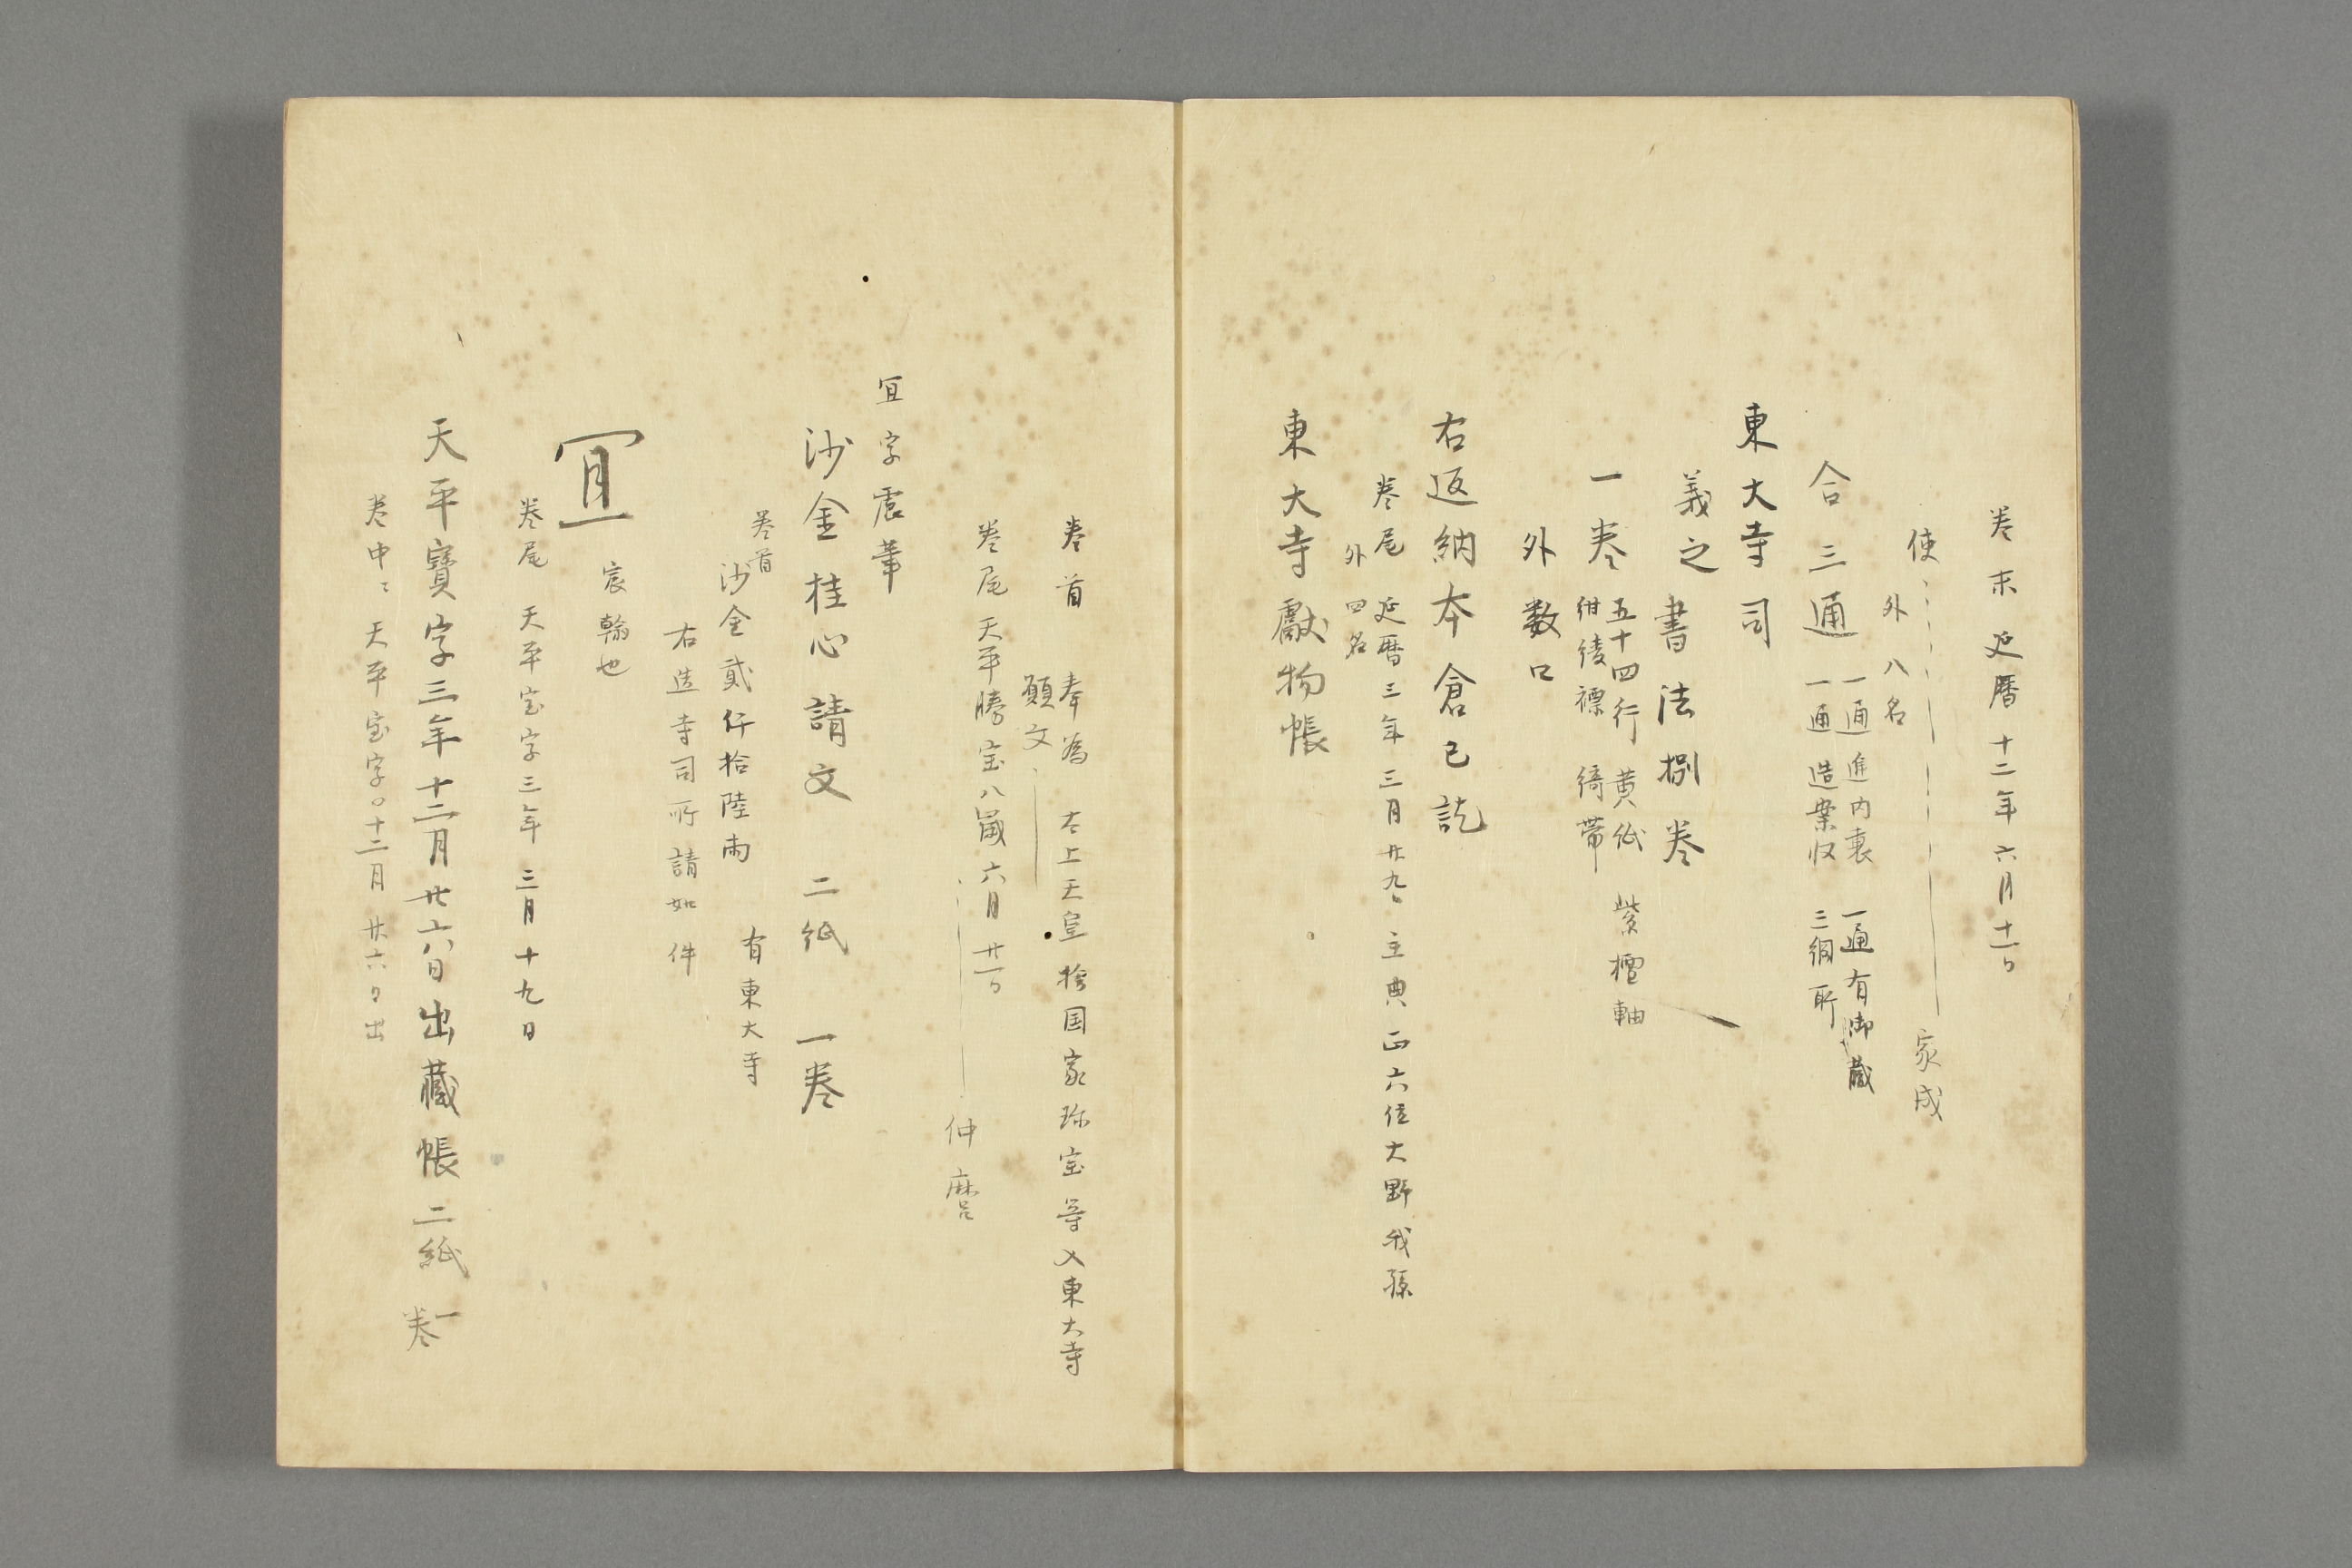 巻末 延暦十二年六月十一日
使 家成
外八名
合三通 一通進内裏 一通有御蔵
一通造案収 三綱所
東大寺司
義之書法捌巻
一巻 五十四行 黄紙 紫檀軸
紺綾褾 綺帯
外数口
右返納本倉已訖
巻尾 延暦三年三月廿九日 主典正六位大野我孫
外四名
東大寺獻物帳
巻首 奉為 太上天皇捨国家珍宝等入東大寺
願文
巻尾 天平勝宝八歳六月廿一日
仲麿
宜字宸筆
沙金桂心請文 二紙 一巻
巻首 有東大寺
沙金貳仟拾陸両
右造寺司所請如件
宜
宸翰也
巻尾 天平宝字三年三月十九日
天平寶字三年十二月廿六日出蔵帳二紙 一巻
巻中ニ 天平宝字〇十二月廿六日出